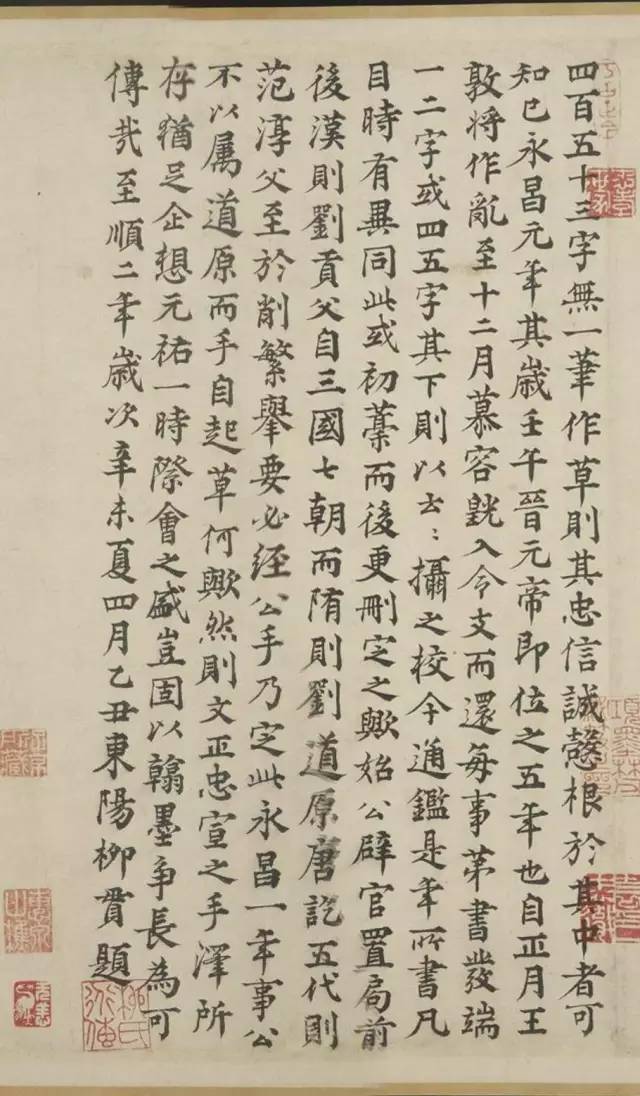 四百五十三字無一筆作草則其忠信誠慤根於其中者可
知已永昌元年其歲壬午晉元帝即位之五年也自正月王
敦將作亂至十二月慕容皝入令支而還每事第書發端
一二字或四五字其下則以云〻攝之校今通鑑是年所書凡
目時有異同此或初藁而後更刪定之歟始公辟官置局前
後漢則劉貢父自三國七朝而隋則劉道原唐訖五代則
范淳父至於削繁舉要必經公手乃定此永昌一年事公
不以屬道原而手自起草何歟然則文正忠宣之手澤所
存猶足企想元祐一時際會之盛豈固以翰墨爭長為可
傳哉至順二年歲次辛未夏四月乙丑東陽柳貫題
柳氏